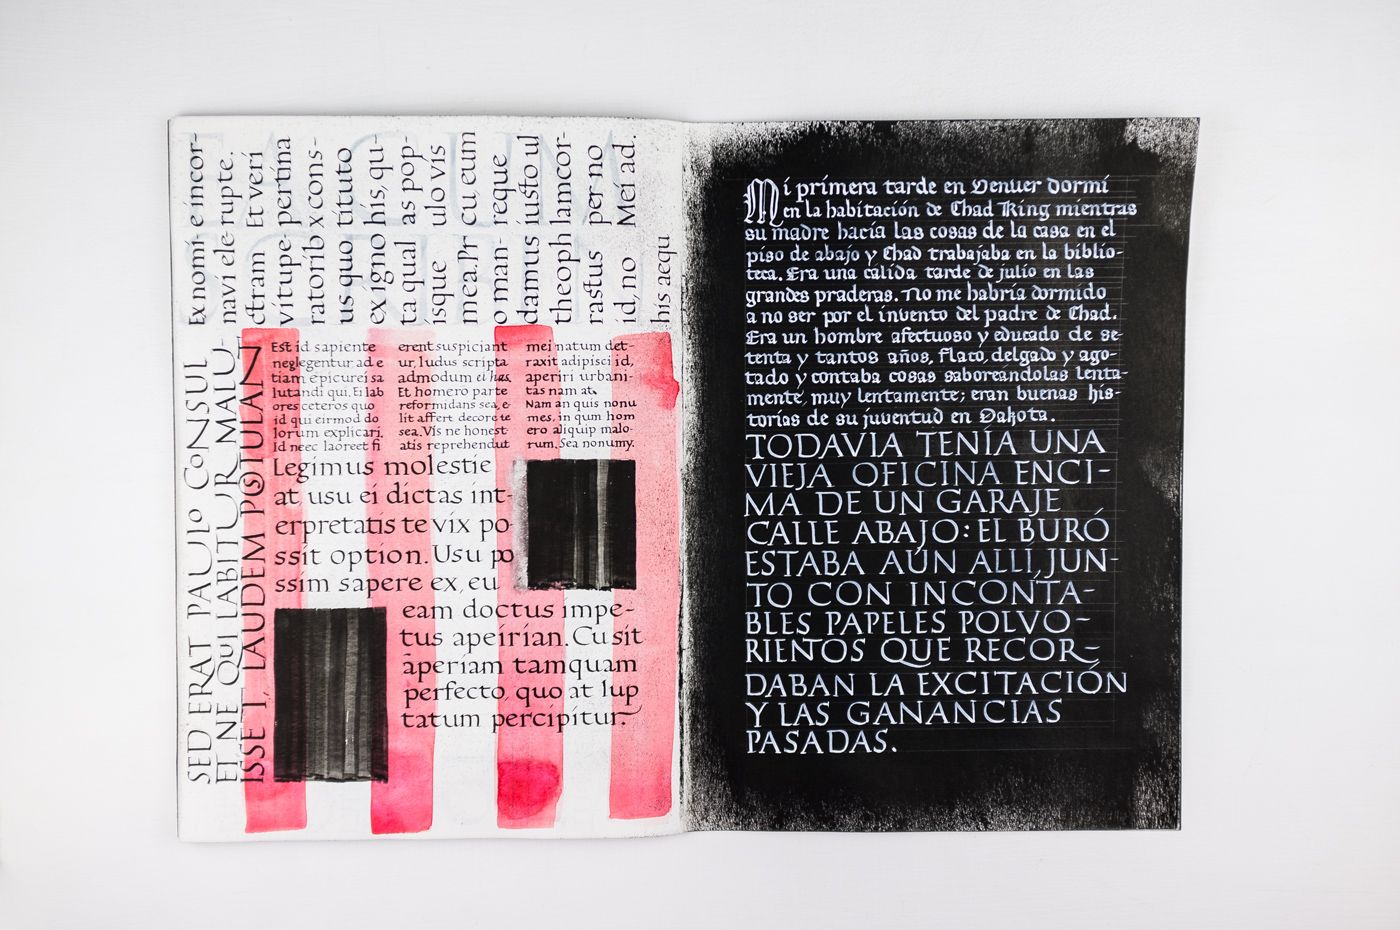 Ex nomi- e incor-
navi ele- rupte.
ctram Et veri
vitupe- pertina
ratorib x cons-
us quo tituto
ex igno his, qu-
ta qual as pop-
isque ulo vis
mea. Pr cu, eum
o man- reque
damus iusto ul
theoph lamcor-
rastus per no
id, no Mei ad.
his aequ
SED ERAT PAULO CONSUL
EI. NE QUI LABITUR MALU-
ISSE T, LAUDEM POSTULAN
Est id sapiente
neglegentur, ad e
tiam epicurei sa
lutandi qui. Ei lab
ores ceteros quo
id qui eirmod do
lorum explicari.
Id nec laoreet fi
erent suspiciant
ur, ludus scripta
admodum ei has.
Et homero parte
reformidans sea, e
lit affert decore te
sea. Vis ne honest
atis reprehendut
mei natum det-
raxit adipisci id,
aperiri urbani-
tas nam at.
Nam an quis nonu
mes, in qum hom
ero aliquip malo-
rum. Sea nonumy.
Legimus molestie
at usu ei dictas int-
erpretatis te vix po-
ssit option. Usu po
ssim sapere ex, eu
eam doctus impe-
tus apeirian. Cu sit
aperiam tamquam
perfecto, quo at lup
tatum percipitur.
Mi primera tarde en Denver dormí
en la habitación de Chad King mientras
su madre hacía las cosas de la casa en el
piso de abajo y Chad trabajaba en la biblio-
teca. Era una cálida tarde de julio en las
grandes praderas. No me habría dormido
a no ser por el invento del padre de Chad.
Era un hombre afectuoso y educado de se-
tenta y tantos años, flaco, delgado y ago-
tado y contaba cosas saboreandolas lenta-
mente, muy lentamente; eran buenas his-
torias de su juventud en Dakota.
TODAVIA TENÍA UNA
VIEJA OFICINA ENCI-
MA DE UN GARAJE
CALLE ABAJO: EL BURÓ
ESTABA AÚN ALLI, JUN-
TO CON INCONTA-
BLES PAPELES POLVO-
RIENTOS QUE RECOR-
DABAN LA EXCITACIÓN
Y LAS GANANCIAS
PASADAS.